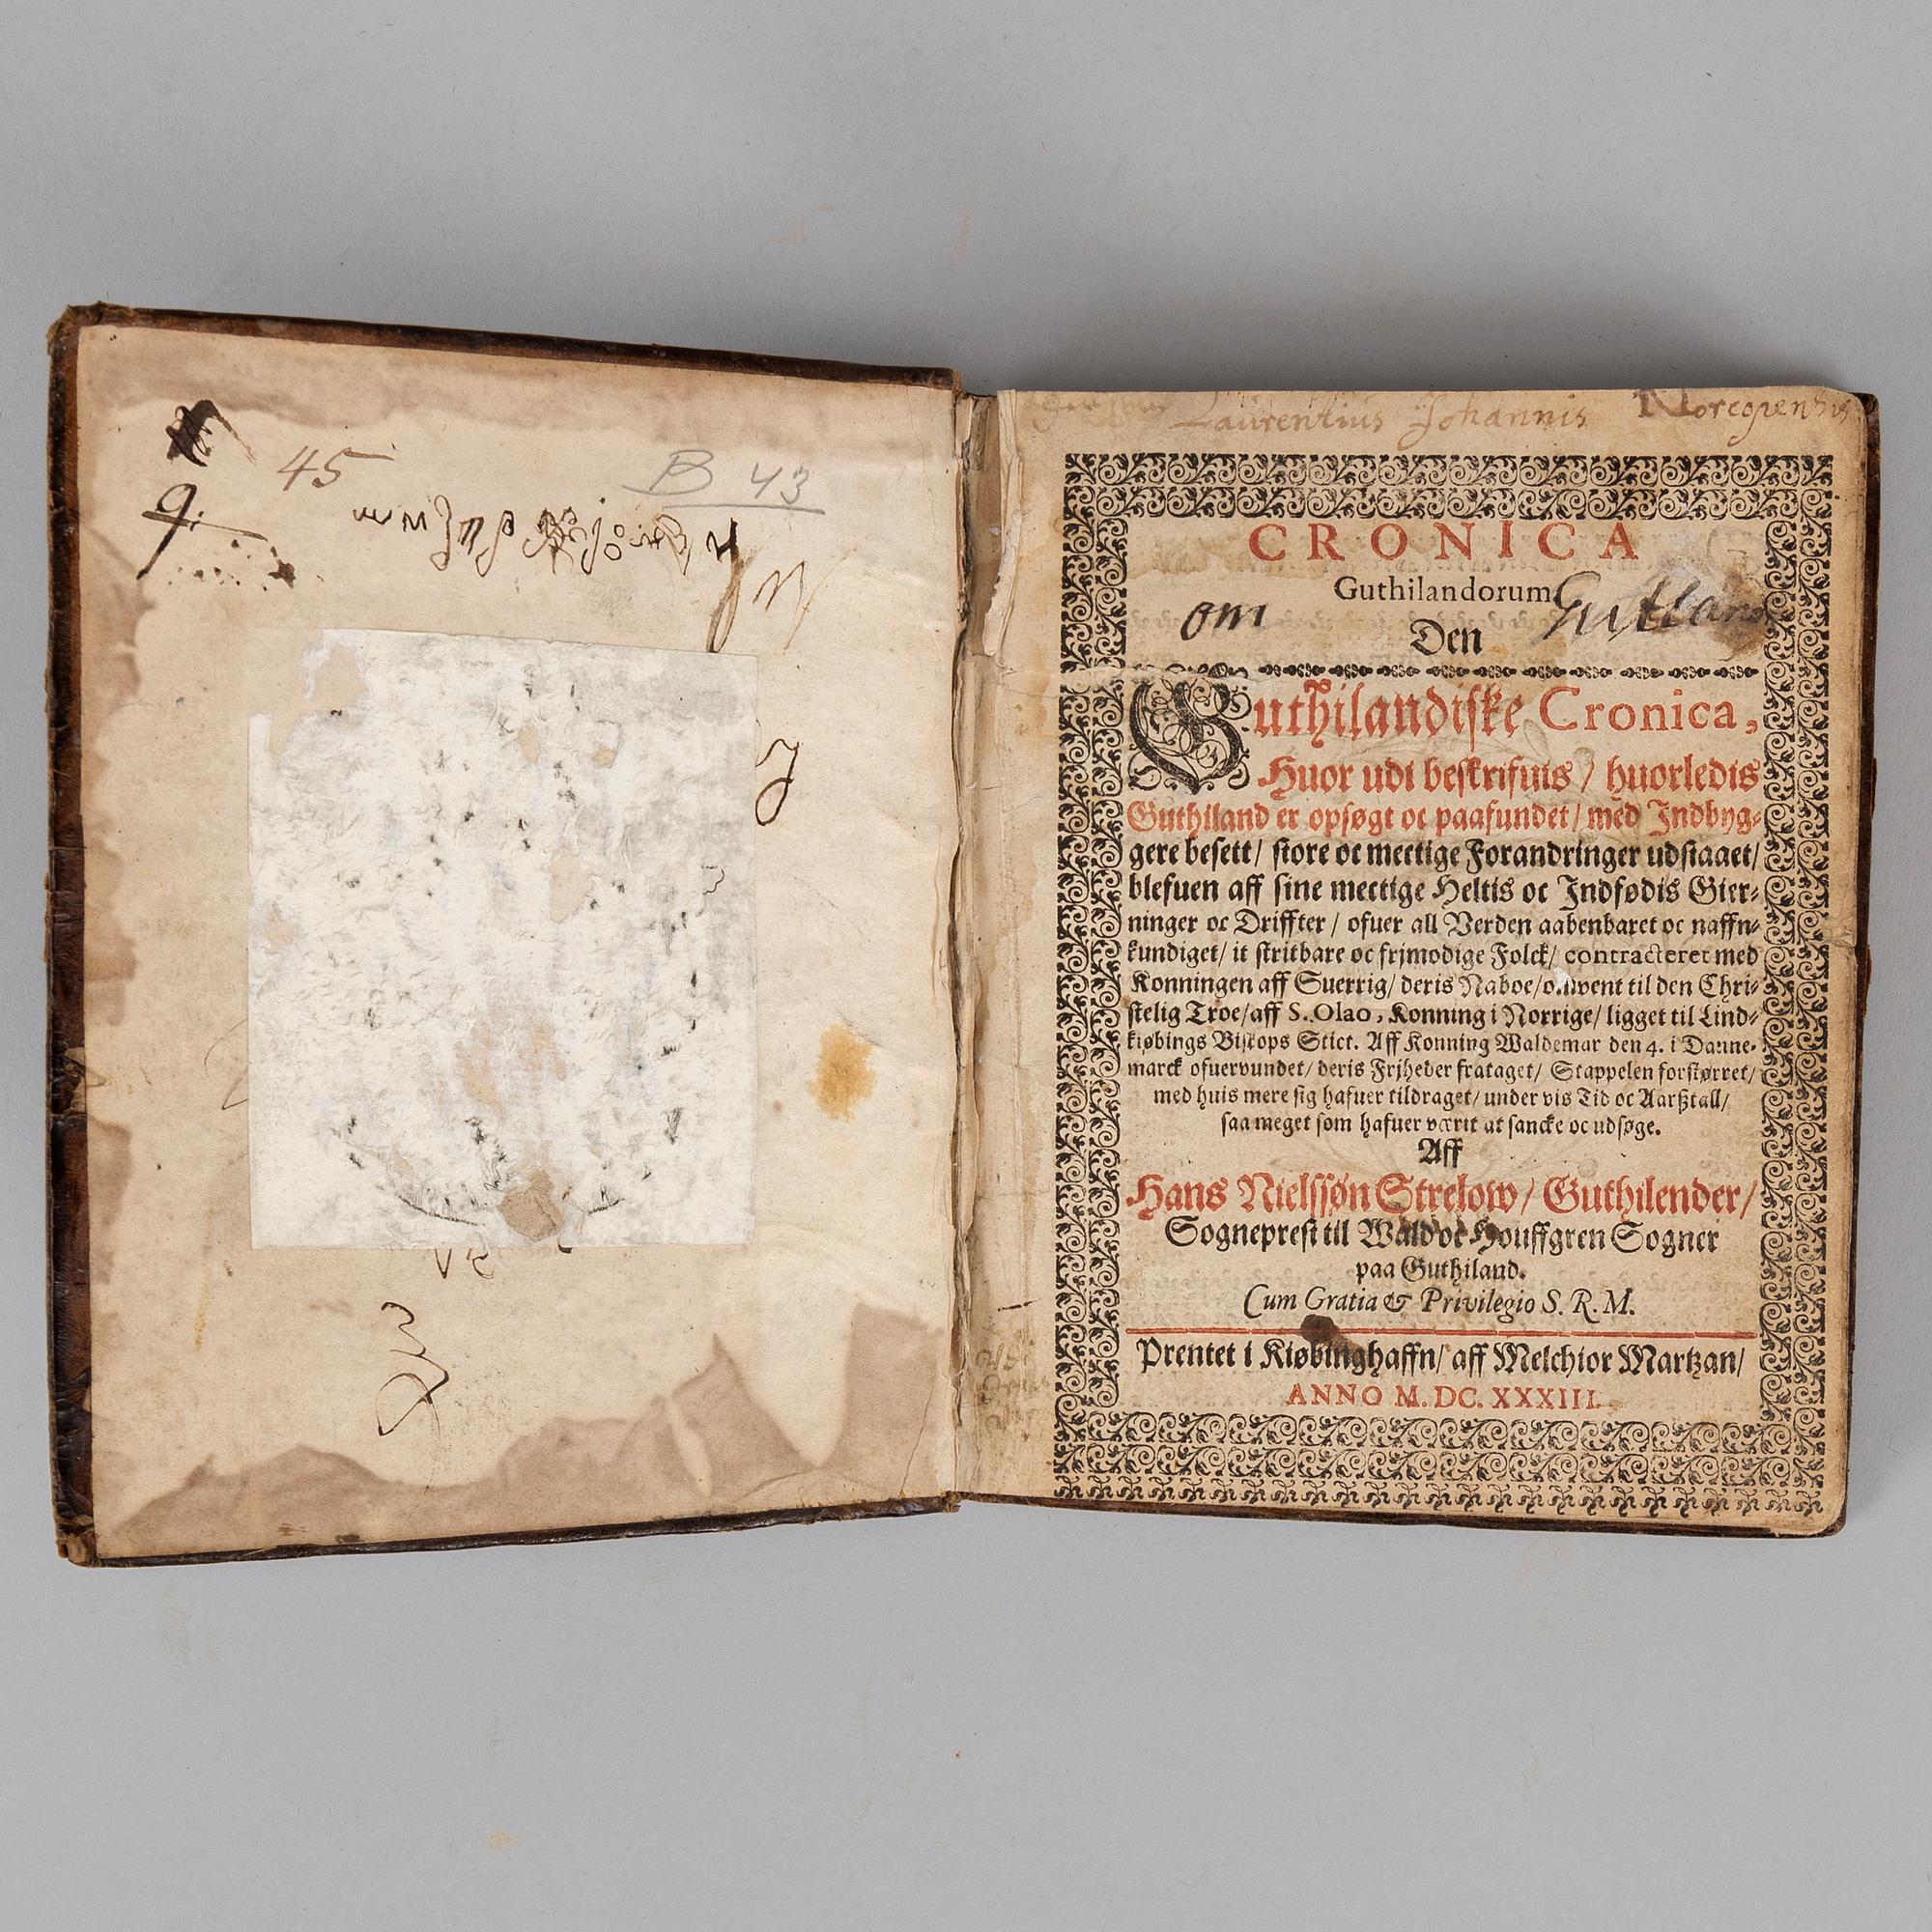 45
B 43
9.
Laurentius Johannis Norcopensis
CRONICA
Guthilandorum.
om Gutland
Den
Guthilandiske Cronica,
Huor udi beskrifuis / huorledis
Guthiland er opsøgt oc paafundet / med Indbyg-
gere besett / store oc mectige Forandringer udstaaet /
blefuen aff sine mectige Heltis oc Indfødis Gier-
ninger oc Driffter / ofuer all Verden aabenbaret oc naffn-
kundiget / it stritbare oc frjmodige Folck / contracteret med
Konningen aff Suerrig / deris Naboe / omvent til den Chri-
stelig Troe / aff S. Olao, Konning i Norrige / ligget til Lind-
kiøbings Biskops Stict. Aff Konning Waldemar den 4. i Danne-
marck ofuervundet / deris Frjheder frataget / Stappelen forstørret /
med huis mere sig hafuer tildraget / under vis Tid oc Aarßtall /
saa meget som hafuer værit at sancke oc udsøge.
Aff
Hans Nielssøn Strelow / Guthilender /
Sogneprest til Wald oc Houffgren Sogner
paa Guthiland.
Cum Gratia & Privilegio S. R. M.
Prentet i Kiøbinghaffn / aff Melchior Martzan /
ANNO M. DC. XXXIII.